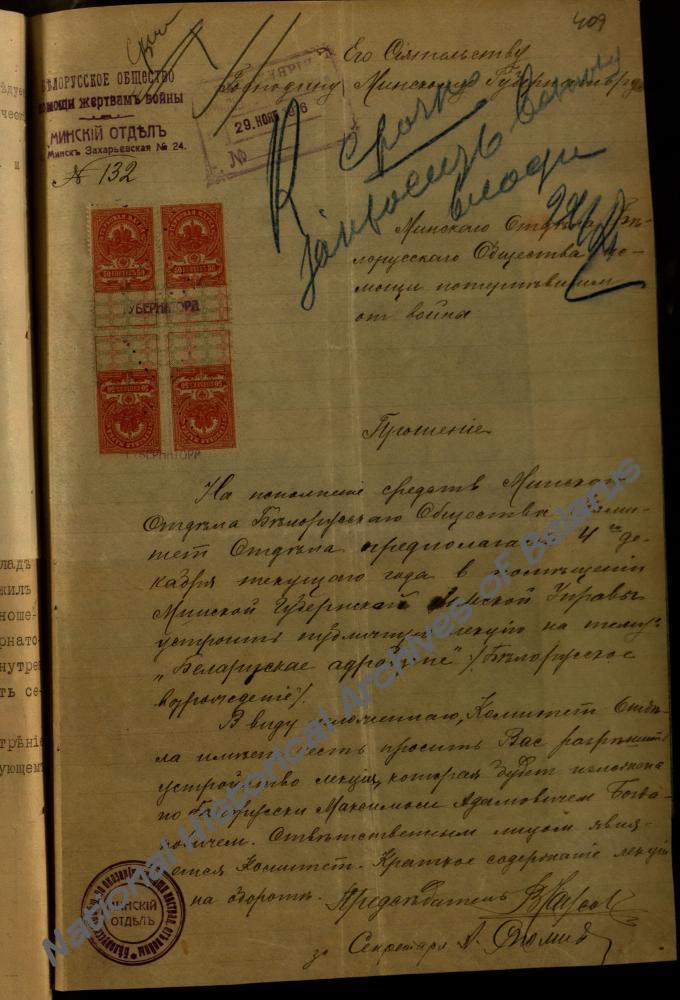 409
Его Сіятельству
Господину Минскому Губернатору
БѢЛОРУССКОЕ ОБЩЕСТВО
помощи жертвамъ войны
МИНСКІЙ ОТДѢЛЪ
Минскъ Захарьевская № 24.
№ 132
29. НОЯБ 1916
№
Срочно
Минского Отдѣла Бѣ-
лорусского Общества по-
мощи потерпѣвшим
от войны
ГУБЕРНАТОРА
ГУБЕРНАТОРА
Прошеніе
На пополненіе средств Минскаго
Отдѣла Бѣлорусскаго Общества Коми-
тет Отдѣла предполагает 4го де-
кабря текущого года в помѣщеніи
Минской Губернской Земской Управы
устроить публичную лекцію на тему:
„Беларускае адраджэнне" /Бѣлорусское
возрожденіе/.
В виду изложеннаго, Комитет Отдѣ-
ла имѣет честь просить Вас разрѣшить
устройство лекціи, которая будет изложена
по Бѣлорусски Максимом Адамовичем Богда-
новичем. Отвѣтственным лицом явля-
ется Комитет. Краткое содержаніе лекціи
на оборотѣ.
Предсѣдатель
за Секретаря А.
МИНСКІЙ
ОТДѢЛЪ
National Historical Archives of Belarus